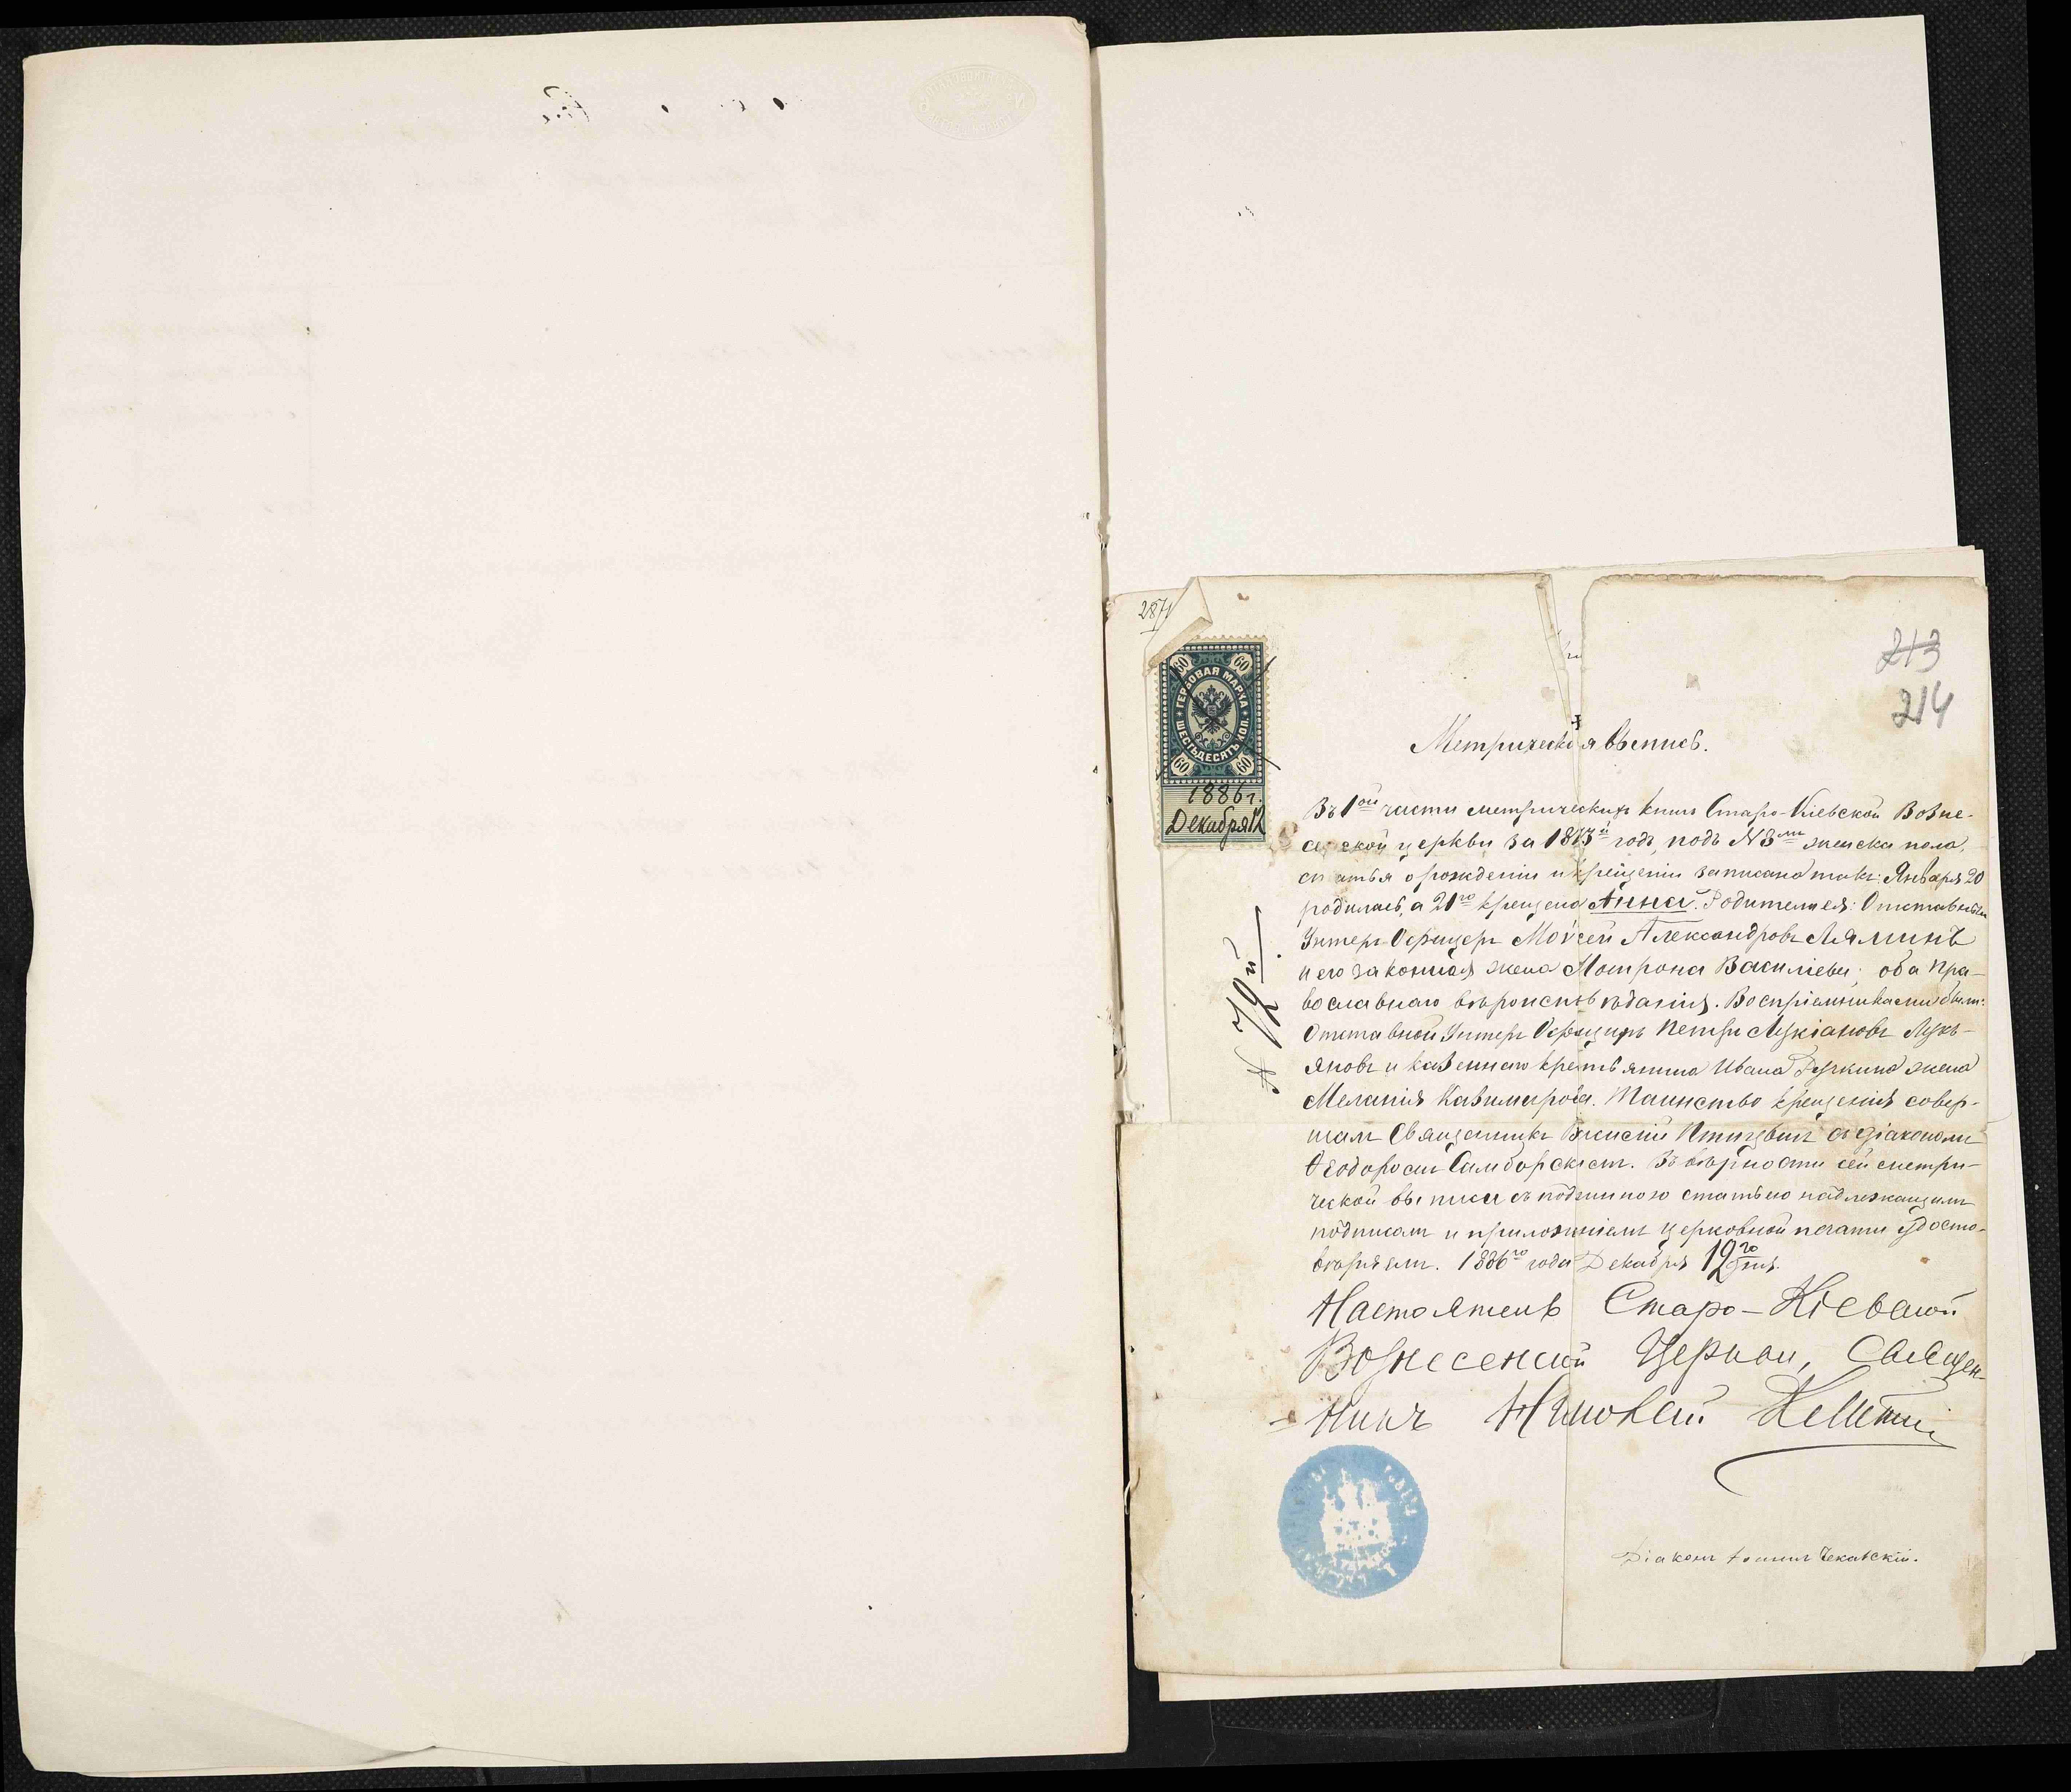 2871
213
214
60 60
ГЕРБОВАЯ МАРКА
ШЕСТЬДЕСЯТЪ КОП.
60 60
1886 г.
Декабря 12
Метрическая Выпись.
Въ 1ой части метрическихъ книгъ Старо-Кіевской Возне-
сенской церкви за 1873й годъ, подъ N 3мъ женска пола,
статья о рожденіи и крещеніи записана такъ: Января 20
родилась, а 21го крещена Анна. Родители ея: Отставный
Унтеръ-Офицеръ Моѵсей Александровъ Ляминъ
и его законная жена Мотрона Василіева; оба пра-
вославнаго вѣроисповѣданія. Воспріемниками были:
Отставной Унтеръ Офицеръ Петръ Лукіановъ Лукь-
яновъ и казеннаго крестьянина Ивана жена
Меланія Казимирова. Таинство крещенія совер-
шалъ Священникъ съ діакономъ
Ѳеодоромъ Самборскимъ. Въ вѣрности сей метри-
ческой выписи съ подлинною статьею надлежащимъ
подписомъ и приложеніемъ церковной печати удосто-
вѣряемъ. 1886го года Декабря 12го дня.
N 79й
Настоятель Старо-Кіевской
Вознесенской Церкви, Священ-
никъ
Діаконъ Іоаннъ Чекавскій.